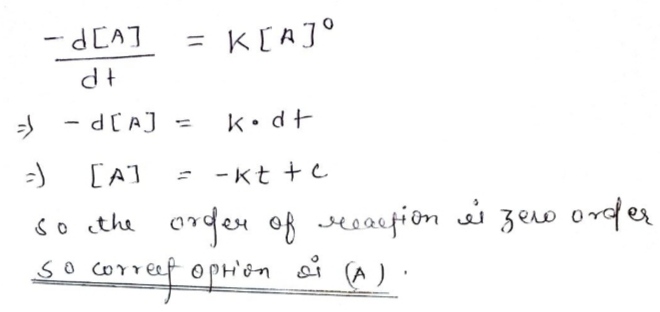 -d[A] / dt = K[A]⁰
=) - d[A] = K • dt
=) [A] = -Kt + c
so the order of reaction is zero order
so correct option is (A) .